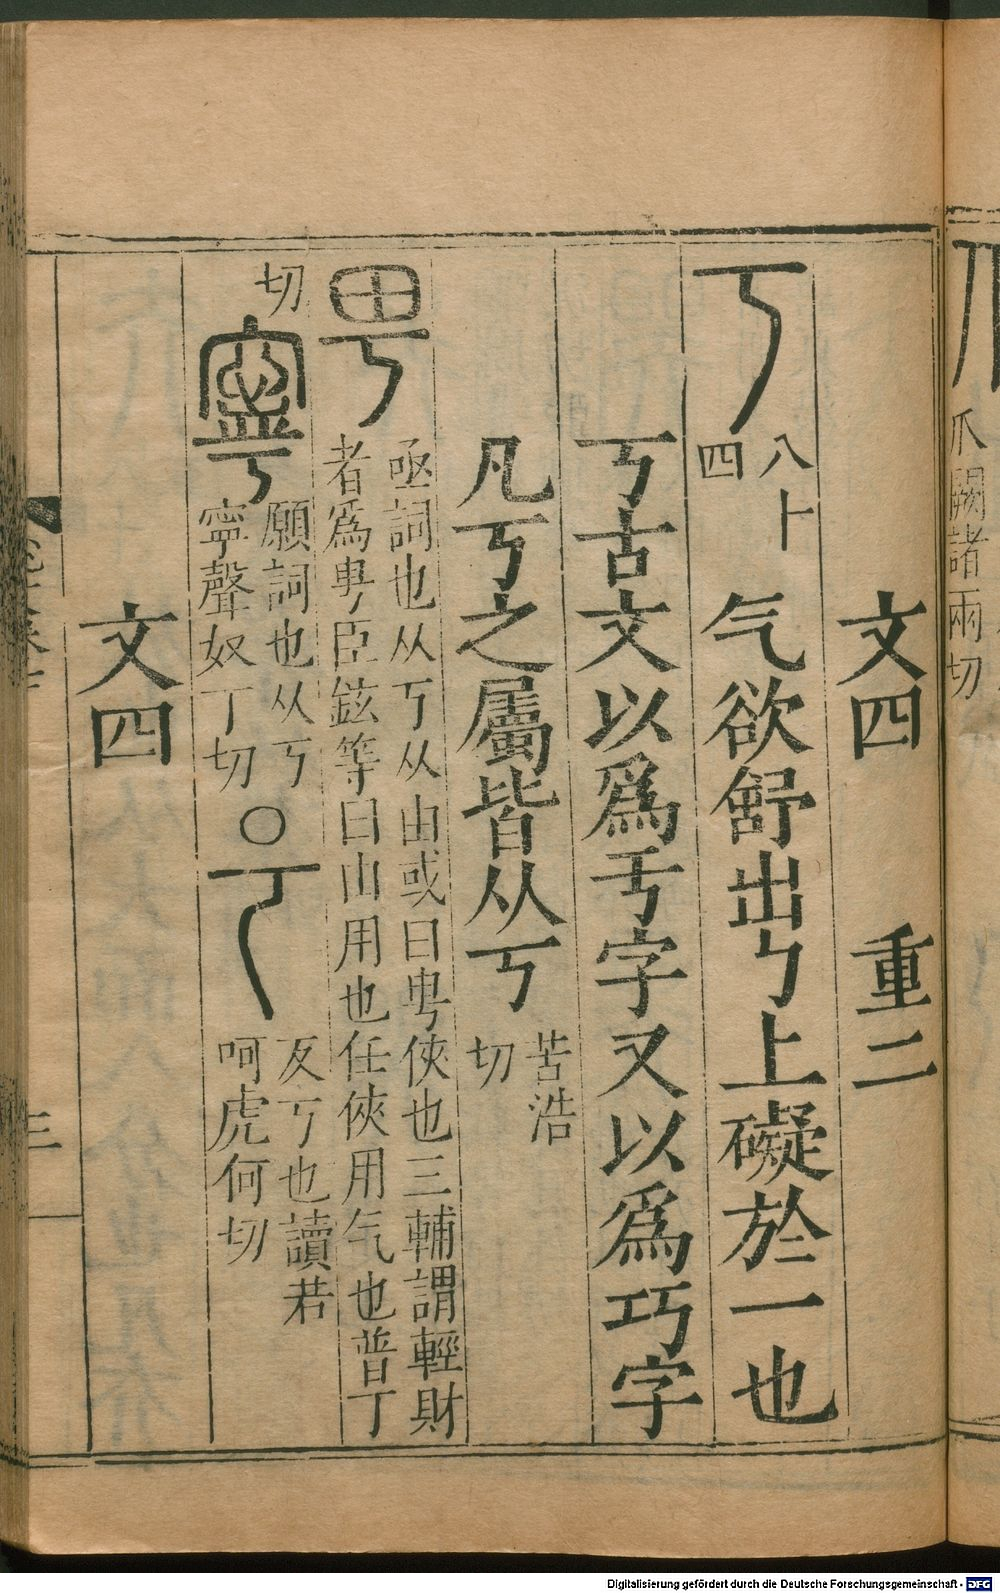 爪闕諸兩切
文四 重二
丂
八十
四
气欲舒出㇉上礙於一也
丂古文以爲亏字又以爲巧字
凡丂之屬皆从丂
苦浩
切
甹
亟詞也从丂从由或曰甹俠也三輔謂輕財
者爲甹臣鉉等曰由用也任俠用气也普丁
切
寧
願詞也从丂
寧聲奴丁切
○
反丂也讀若
呵虎何切
文四
三
Digitalisierung gefördert durch die Deutsche Forschungsgemeinschaft - DFG